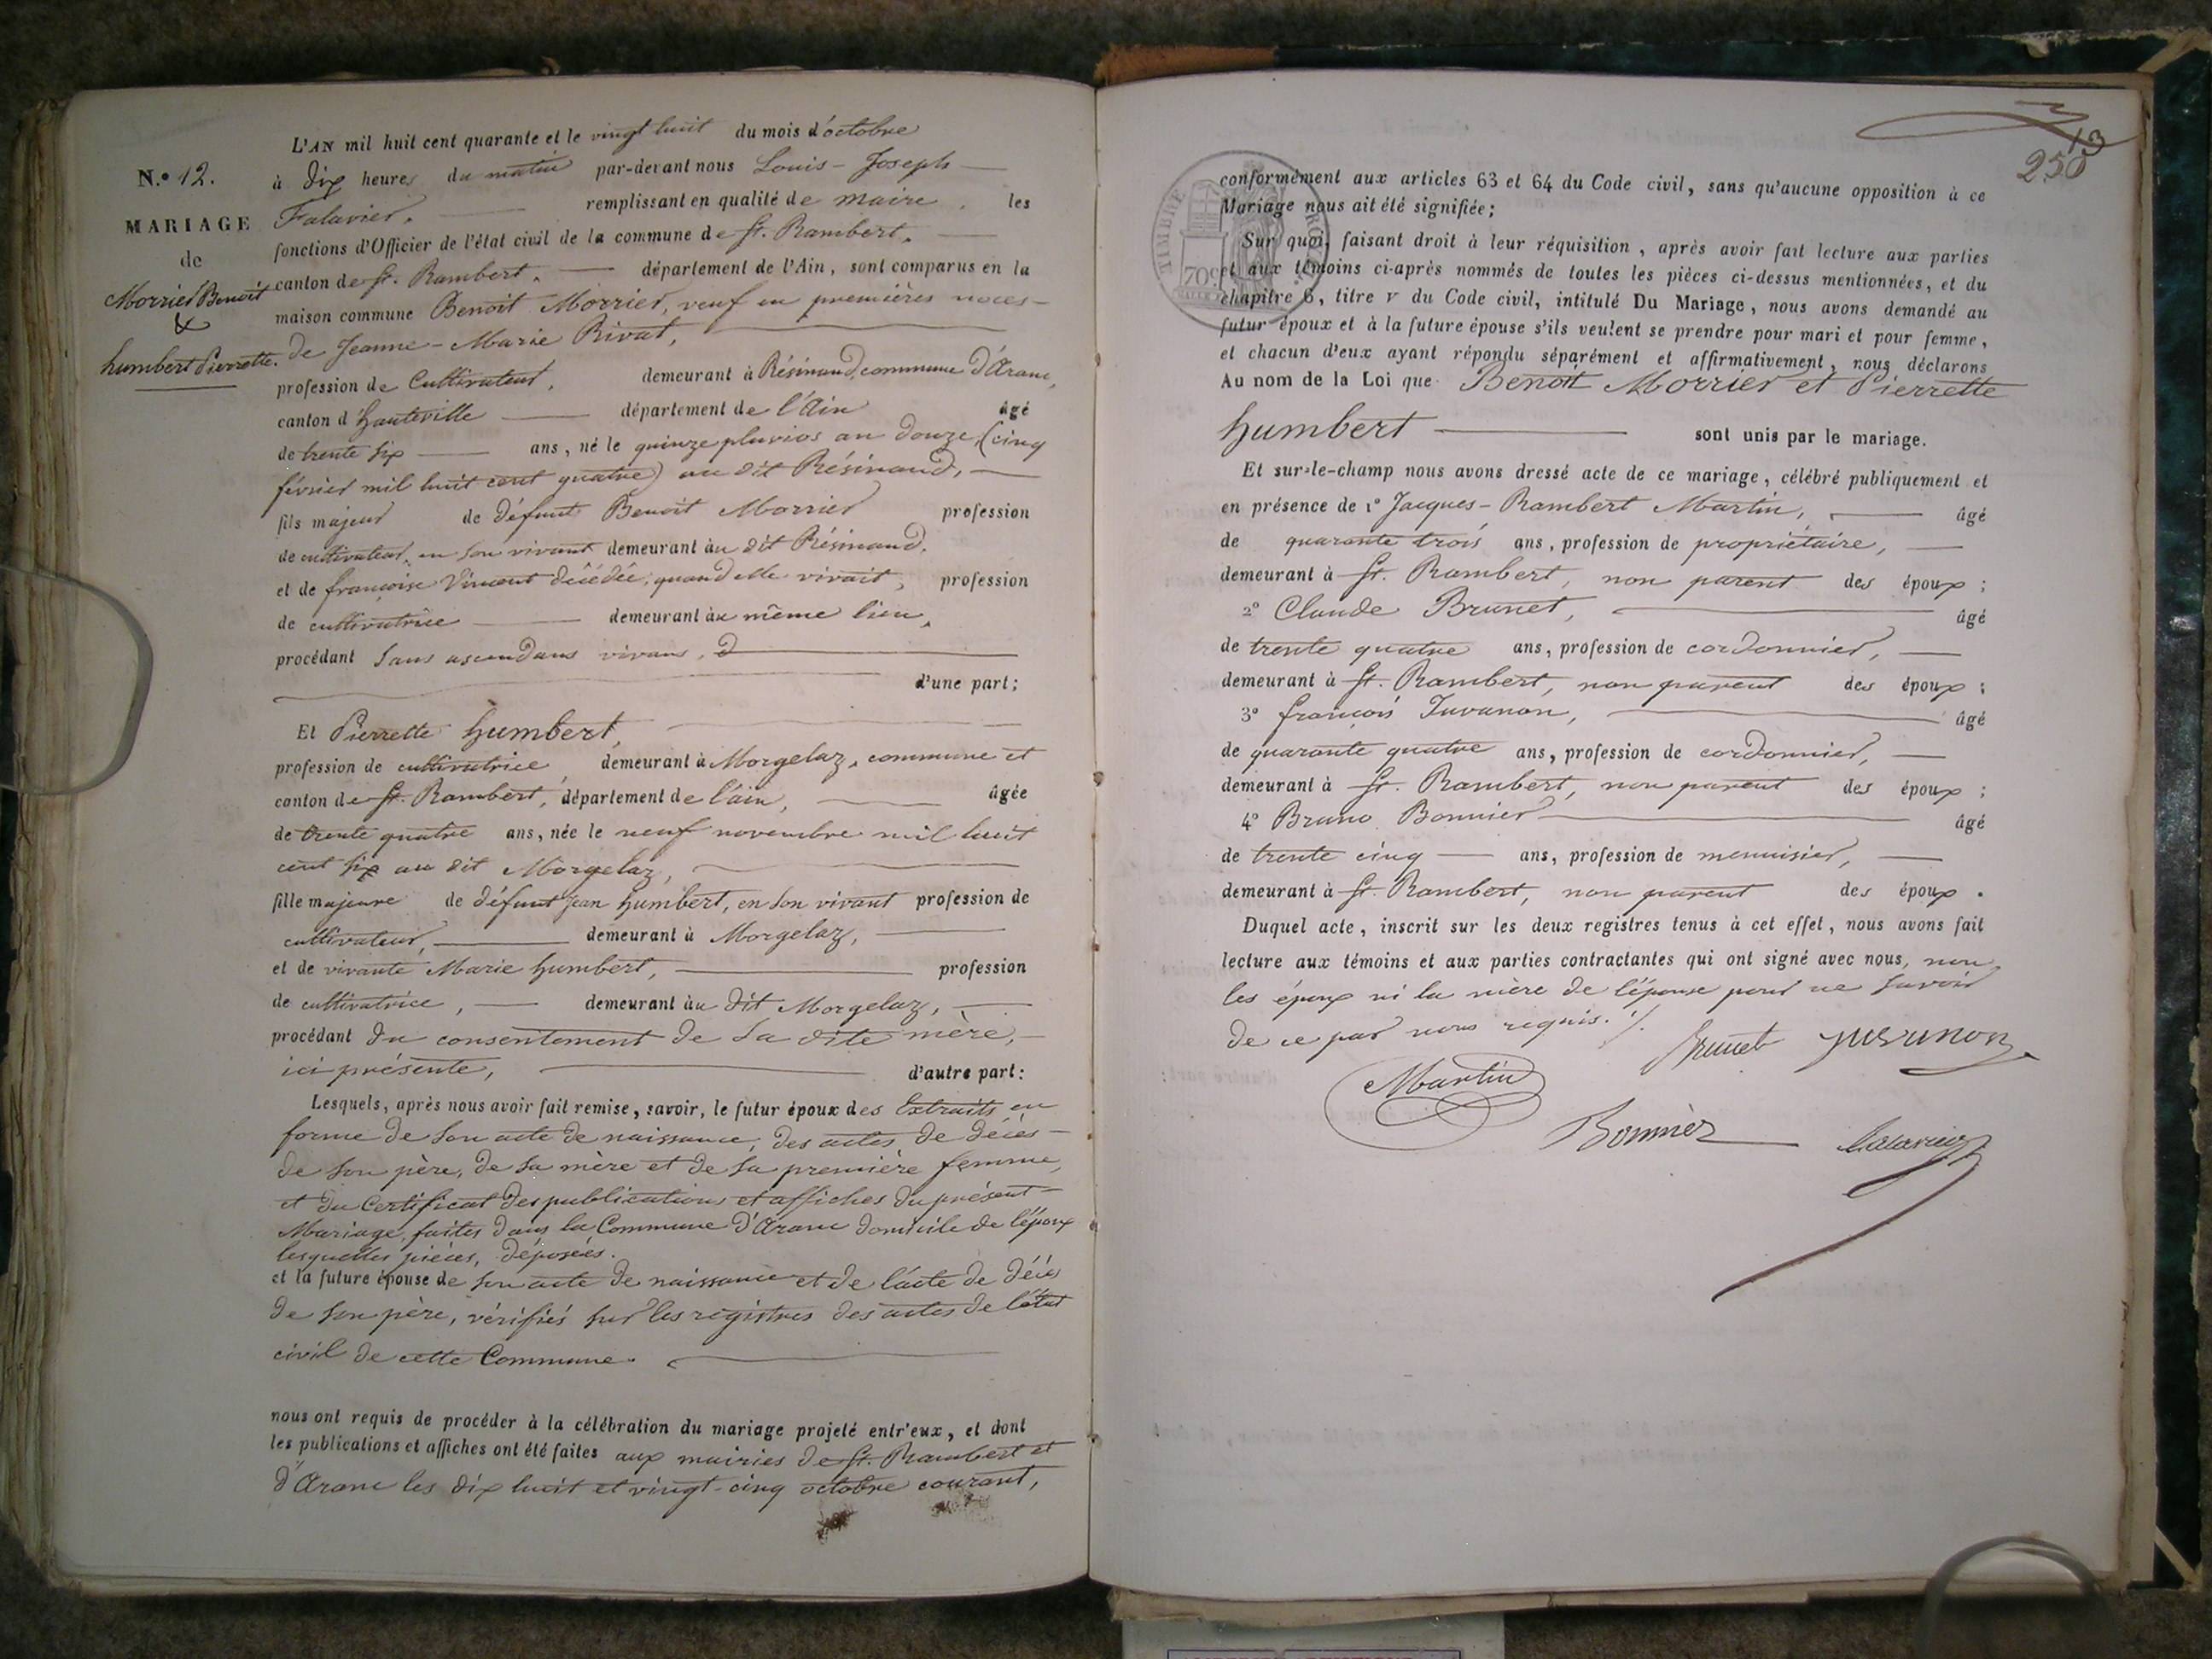 N.° 12.
MARIAGE
de
Morrier Benoit
&
humbert Pierrette.
L'AN mil huit cent quarante et le vingt huit du mois d'octobre
à dix heures du matin par-devant nous Louis-Joseph
Falavier, remplissant en qualité de maire, les
fonctions d'Officier de l'état civil de la commune de St. Rambert,
canton de St. Rambert, département de l'Ain, sont comparus en la
maison commune Benoit Morrier, veuf en premières noces
de Jeanne-Marie Rivat,
profession de Cultivateur, demeurant à Résinand, commune d'Aranc,
canton d'hauteville département de l'Ain âgé
de trente six ans, né le quinze pluvios an douze, (cinq
février mil huit cent quatre) au dit Résinand,
fils majeur de défunt Benoit Morrier profession
de cultivateur, en son vivant demeurant au dit Résinand,
et de françoise Vincent décédée, quand elle vivait, profession
de cultivatrice demeurant au même lieu,
procédant sans ascendans vivans,
d'une part;
Et Pierrette humbert,
profession de cultivatrice, demeurant à Morgelaz, commune et
canton de St. Rambert, département de l'ain, âgée
de trente quatre ans, née le neuf novembre mil huit
cent six au dit Morgelaz,
fille majeure de défunt Jean humbert, en son vivant profession de
cultivateur, demeurant à Morgelaz,
et de vivante Marie humbert, profession
de cultivatrice, demeurant au dit Morgelaz,
procédant du consentement de sa dite mère,
ici présente, d'autre part:
Lesquels, après nous avoir fait remise, savoir, le futur époux des Extraits en
forme de son acte de naissance, des actes de décès
de son père, de sa mère et de sa première femme,
et du Certificat des publications et affiches du présent
Mariage, faites dans la Commune d'Aranc domicile de l'époux
lesquelles pièces, déposées.
et la future épouse de son acte de naissance et de l'acte de décès
de son père, vérifiés sur les registres des actes de l'état
civil de cette Commune.
nous ont requis de procéder à la célébration du mariage projeté entr'eux, et dont
les publications et affiches ont été faites aux mairies de St. Rambert et
d'Aranc les dix huit et vingt-cinq octobre courant,
13
250
TIMBRE ROYAL
70c
conformément aux articles 63 et 64 du Code civil, sans qu'aucune opposition à ce
Mariage nous ait été signifiée;
Sur quoi, faisant droit à leur réquisition, après avoir fait lecture aux parties
et aux témoins ci-après nommés de toutes les pièces ci-dessus mentionnées, et du
chapitre 6, titre v du Code civil, intitulé Du Mariage, nous avons demandé au
futur époux et à la future épouse s'ils veulent se prendre pour mari et pour femme,
et chacun d'eux ayant répondu séparément et affirmativement, nous déclarons
Au nom de la Loi que Benoit Morrier et Pierrette
humbert sont unis par le mariage.
Et sur-le-champ nous avons dressé acte de ce mariage, célébré publiquement et
en présence de 1° Jacques-Rambert Martin, âgé
de quarante trois ans, profession de propriétaire,
demeurant à St. Rambert, non parent des époux;
2° Claude Brunet, âgé
de trente quatre ans, profession de cordonnier,
demeurant à St. Rambert, non parent des époux;
3° françois Juvanon, âgé
de quarante quatre ans, profession de cordonnier,
demeurant à St. Rambert, non parent des époux;
4° Bruno Bonnier âgé
de trente cinq ans, profession de menuisier,
demeurant à St. Rambert, non parent des époux.
Duquel acte, inscrit sur les deux registres tenus à cet effet, nous avons fait
lecture aux témoins et aux parties contractantes qui ont signé avec nous, non
les époux ni la mère de l'épouse pour ne savoir
de ce par nous requis. /.
Brunet Juvanon
Martin
Bonnier Falavier